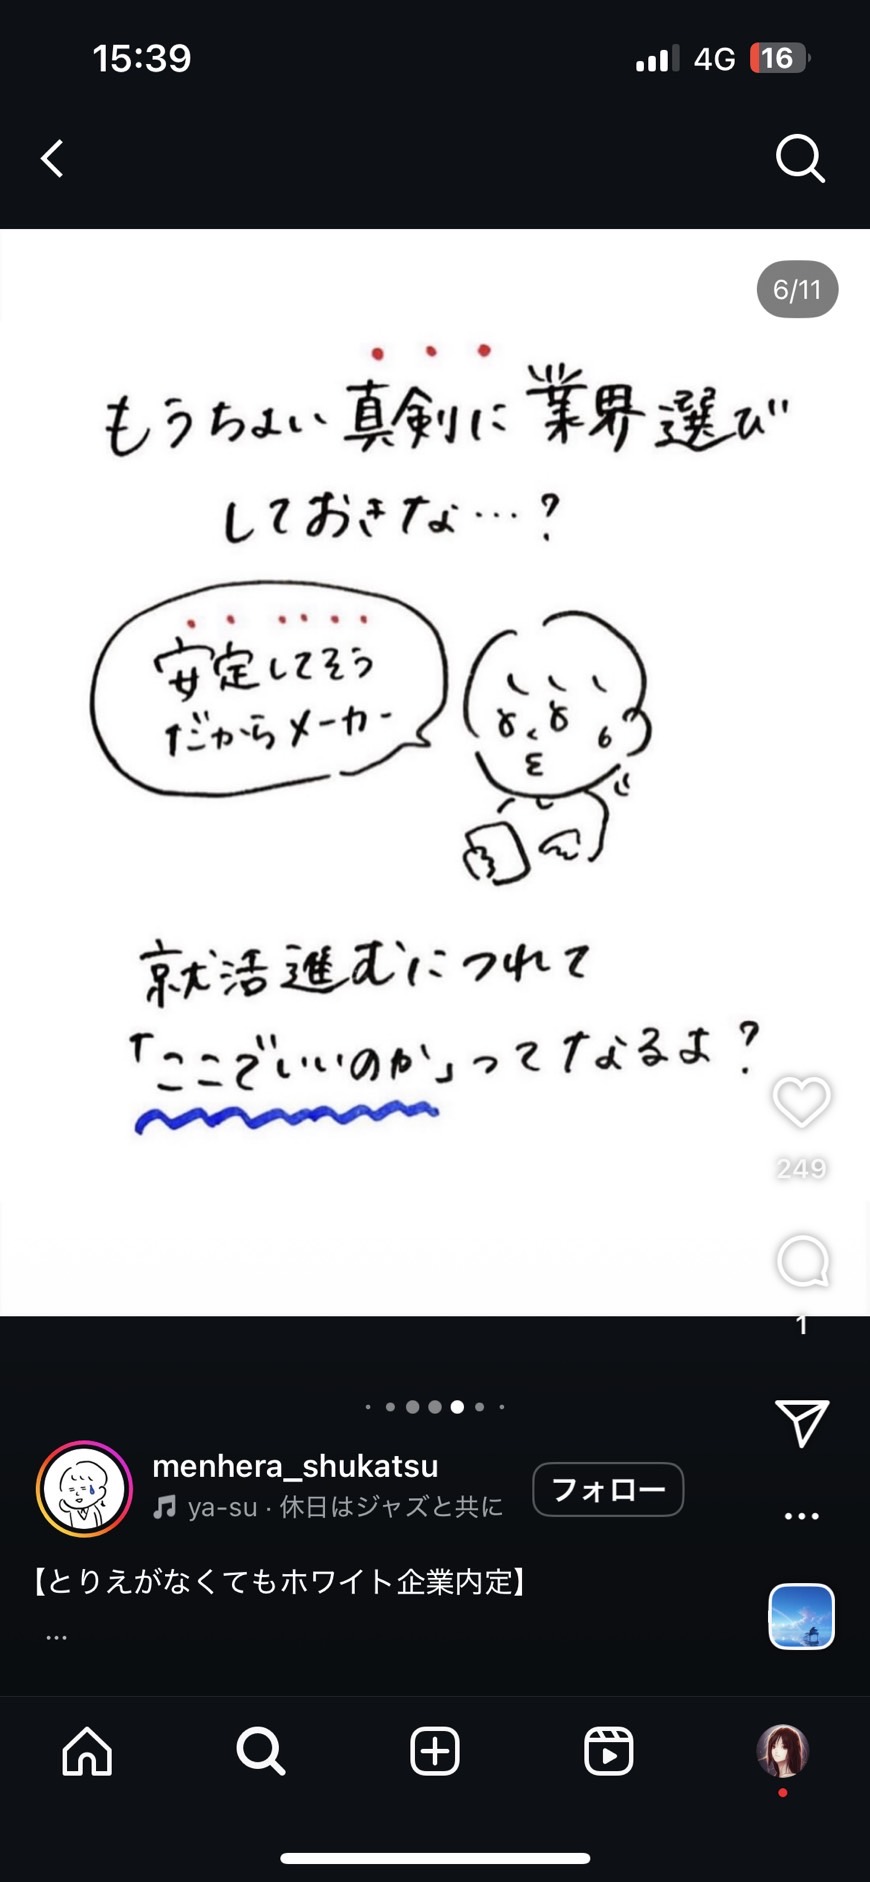 15:39
4G
16
6/11
もうちょい真剣に業界選び
しておきな…?
安定してそう
だからメーカー
就活進むにつれて
「ここでいいのか」ってなるよ?
249
1
menhera_shukatsu
ya-su · 休日はジャズと共に
フォロー
【とりえがなくてもホワイト企業内定】
...